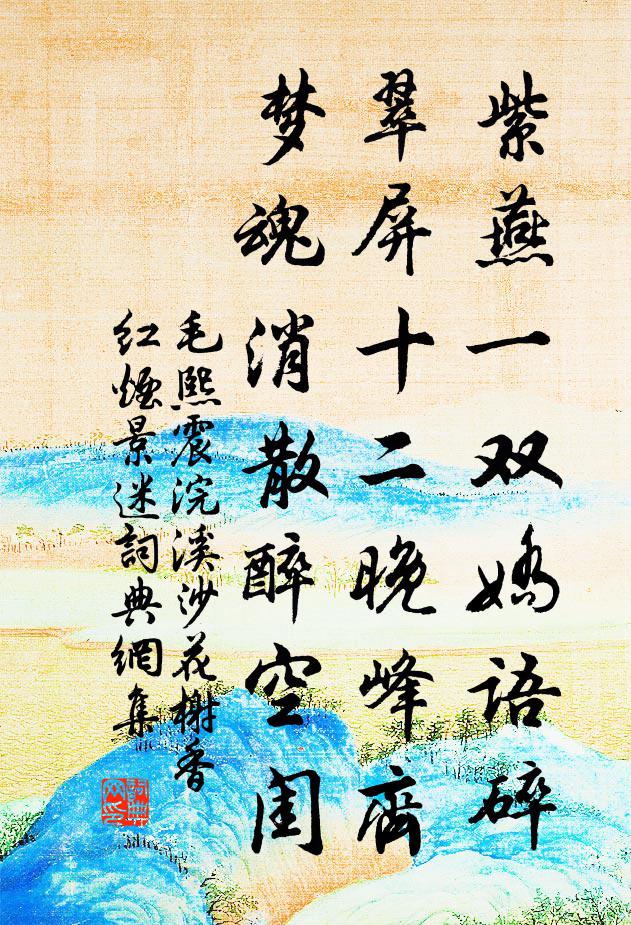 紫燕一双嬌語碎
翠屏十二晚峰齊
梦魂消散醉空闺
毛熙震浣溪沙花榭香
红煙景迷詞典網集